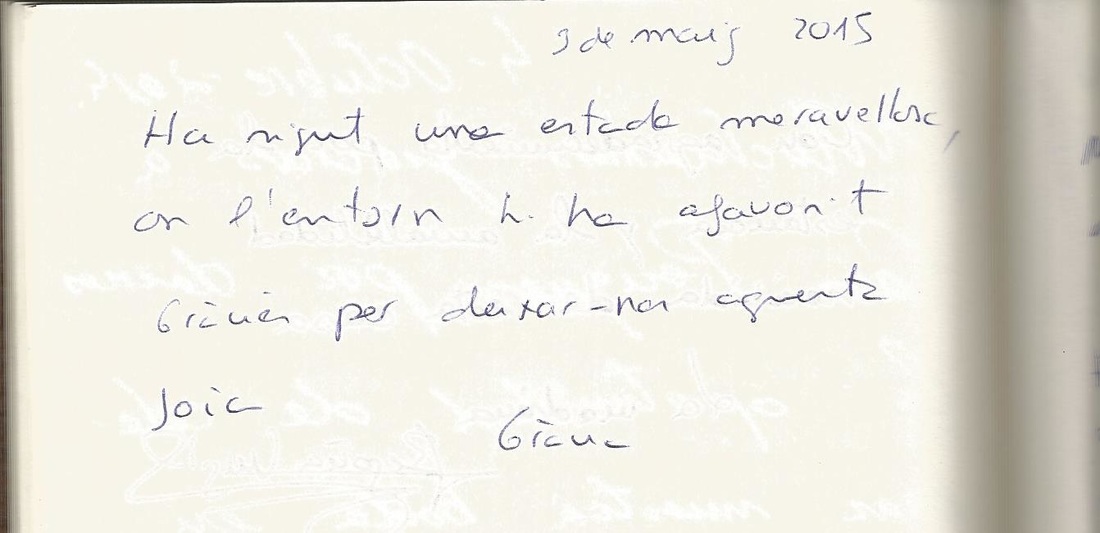 3 de maig 2015
Ha sigut una estada meravellosa,
on l'entorn hi ha afavorit
Gràcies per deixar-nos aquesta
joia
Gràcia